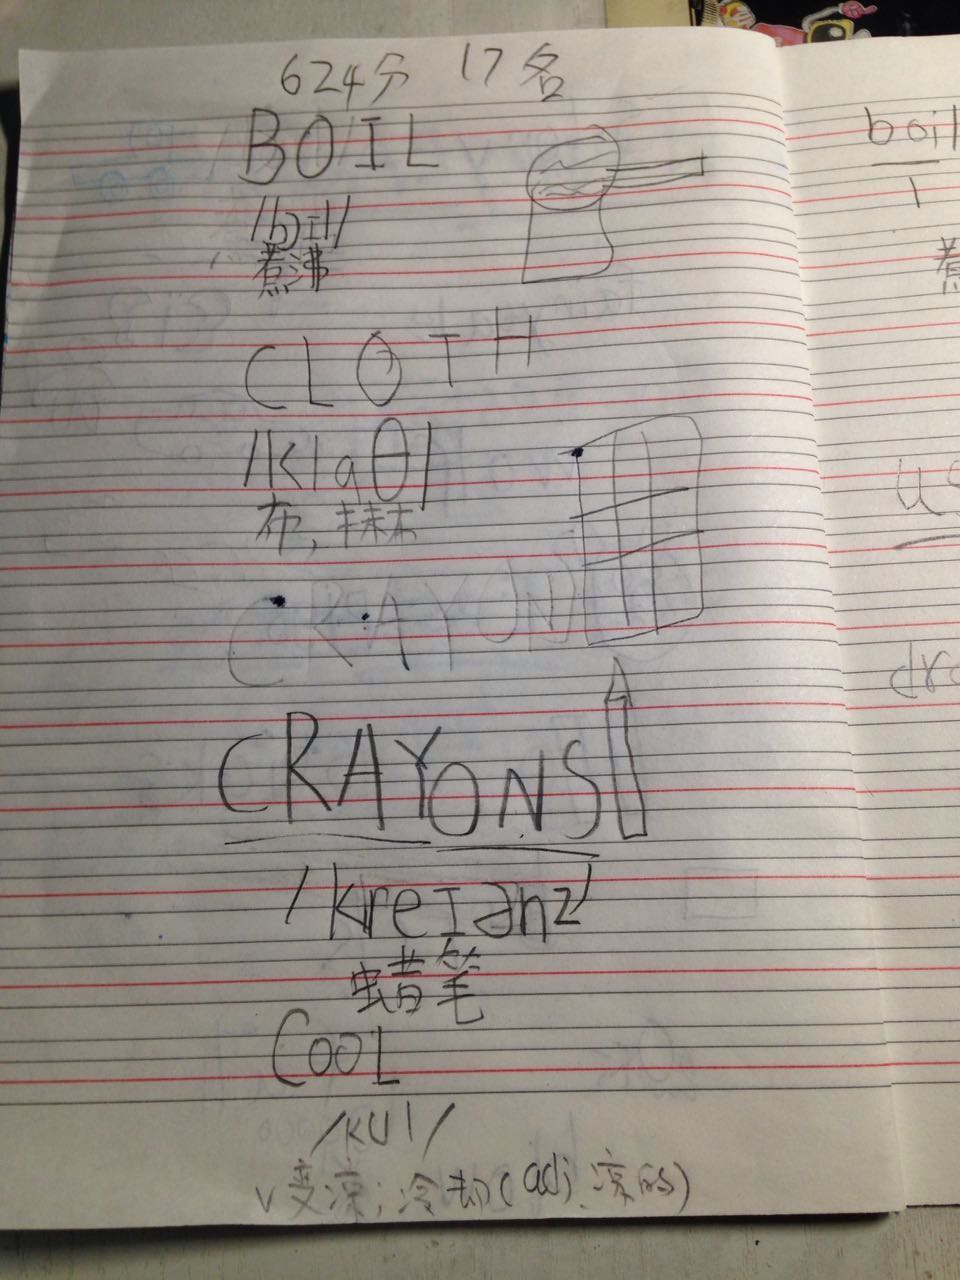 624分 17名
BOIL
/bɔɪl/
煮沸
CLOTH
/klaθ/
布,抹布
CRAYON
CRAYONS
/kreɪənz/
蜡笔
COOL
/kul/
v变凉;冷却(adj.凉的)
boil
煮